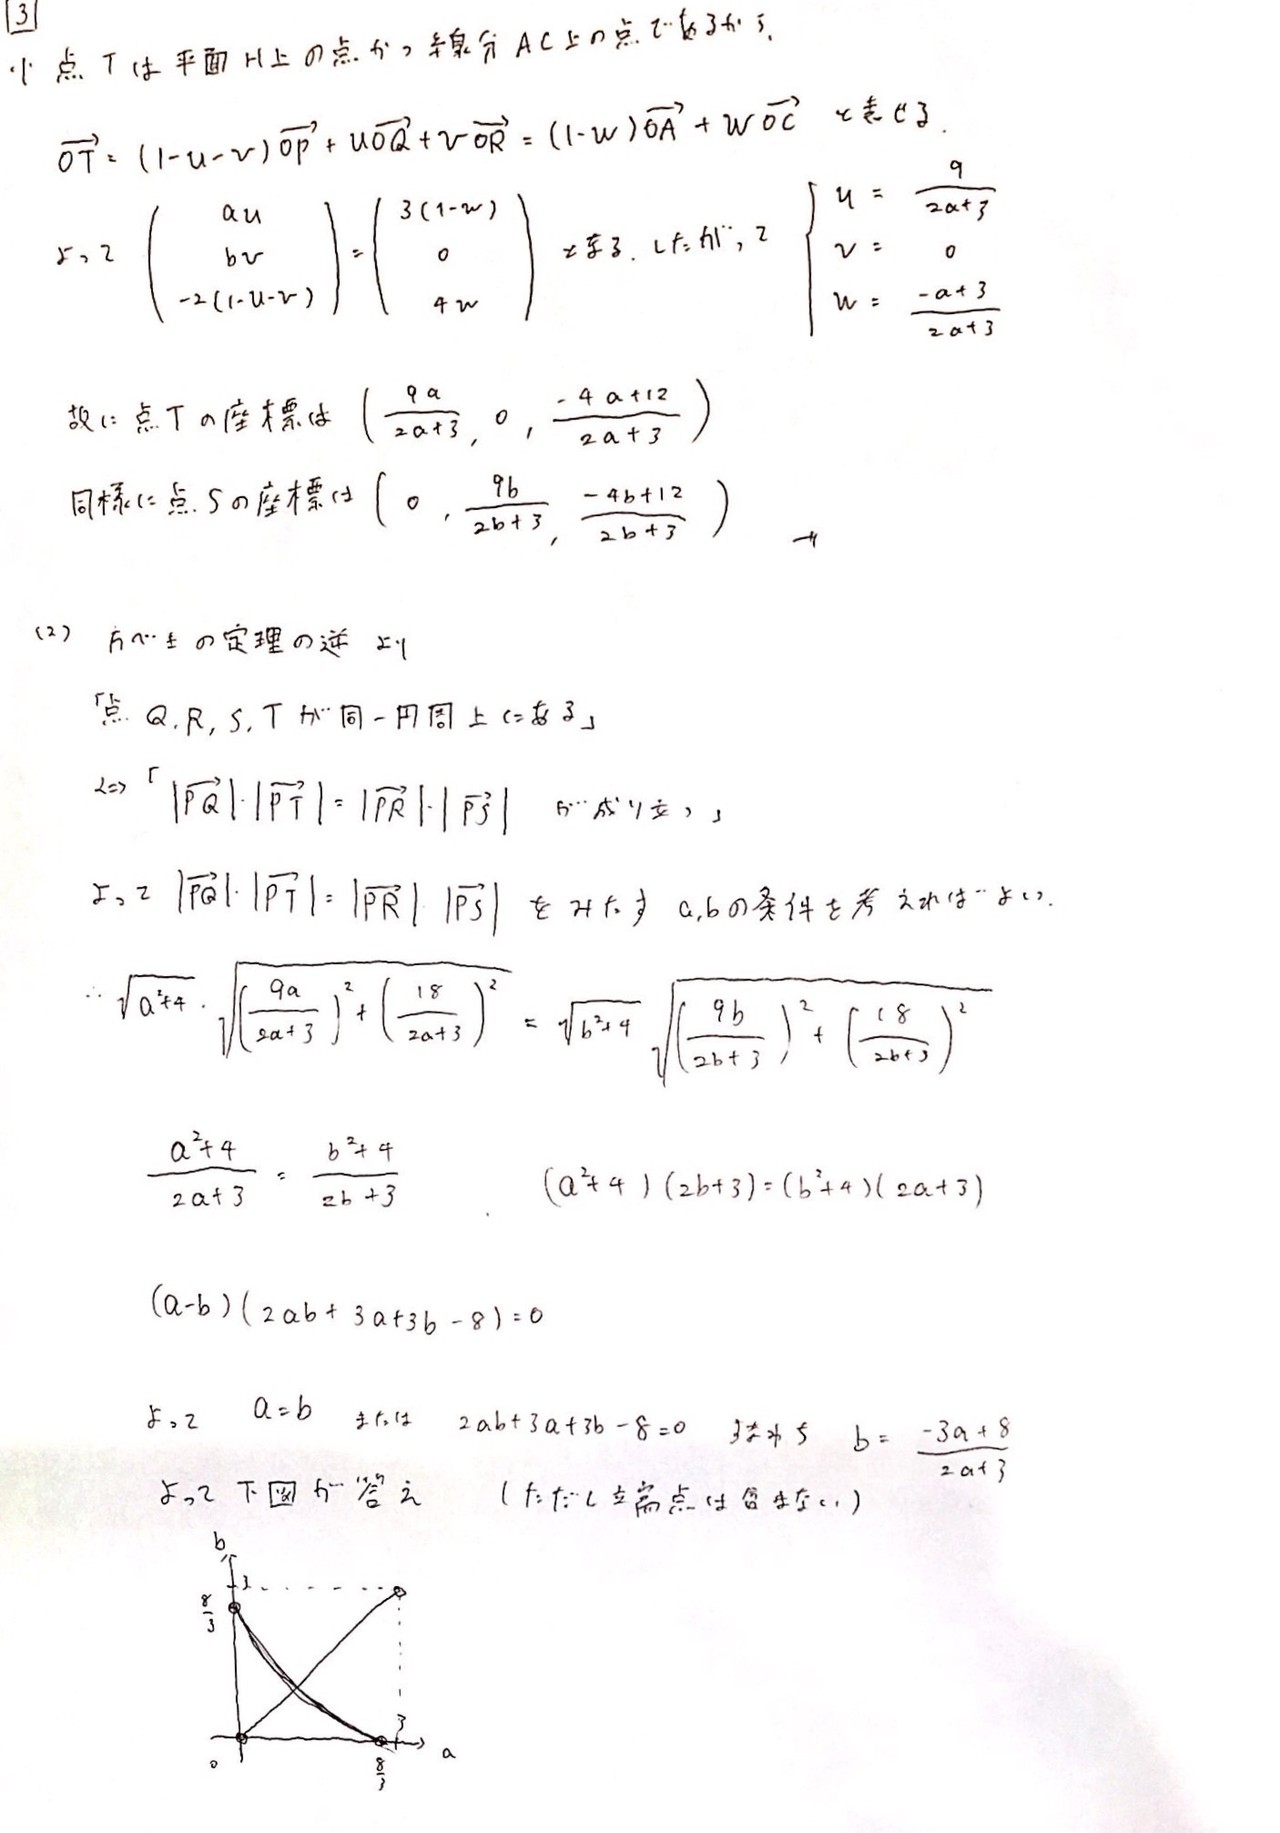 3
(1) 点Tは平面H上の点かつ線分AC上の点であるから、
$\overrightarrow{OT} = (1-u-v)\overrightarrow{OP} + u\overrightarrow{OQ} + v\overrightarrow{OR} = (1-w)\overrightarrow{OA} + w\overrightarrow{OC}$ と表せる.
よって $\begin{pmatrix} au \\ bv \\ -2(1-u-v) \end{pmatrix} = \begin{pmatrix} 3(1-w) \\ 0 \\ 4w \end{pmatrix}$ となる. したがって $\begin{cases} u = \frac{9}{2a+3} \\ v = 0 \\ w = \frac{-a+3}{2a+3} \end{cases}$
故に点Tの座標は $\left( \frac{9a}{2a+3}, 0, \frac{-4a+12}{2a+3} \right)$
同様に点Sの座標は $\left( 0, \frac{9b}{2b+3}, \frac{-4b+12}{2b+3} \right)$
(2) 方べきの定理の逆より
「点Q,R,S,Tが同一円周上にある」
⇔「$|\overrightarrow{PQ}|\cdot|\overrightarrow{PT}| = |\overrightarrow{PR}|\cdot|\overrightarrow{PS}|$ が成り立つ」
よって $|\overrightarrow{PQ}|\cdot|\overrightarrow{PT}| = |\overrightarrow{PR}|\cdot|\overrightarrow{PS}|$ をみたす a,bの条件を考えればよい.
∴ $\sqrt{a^2+4} \cdot \sqrt{\left(\frac{9a}{2a+3}\right)^2 + \left(\frac{18}{2a+3}\right)^2} = \sqrt{b^2+4} \sqrt{\left(\frac{9b}{2b+3}\right)^2 + \left(\frac{18}{2b+3}\right)^2}$
$\frac{a^2+4}{2a+3} = \frac{b^2+4}{2b+3}$ $(a^2+4)(2b+3) = (b^2+4)(2a+3)$
$(a-b)(2ab+3a+3b-8) = 0$
よって a=b または 2ab+3a+3b-8=0 すなわち $b = \frac{-3a+8}{2a+3}$
よって下図が答え (ただし端点は含まない)
b
3
$\frac{8}{3}$
3
0
$\frac{8}{3}$
a